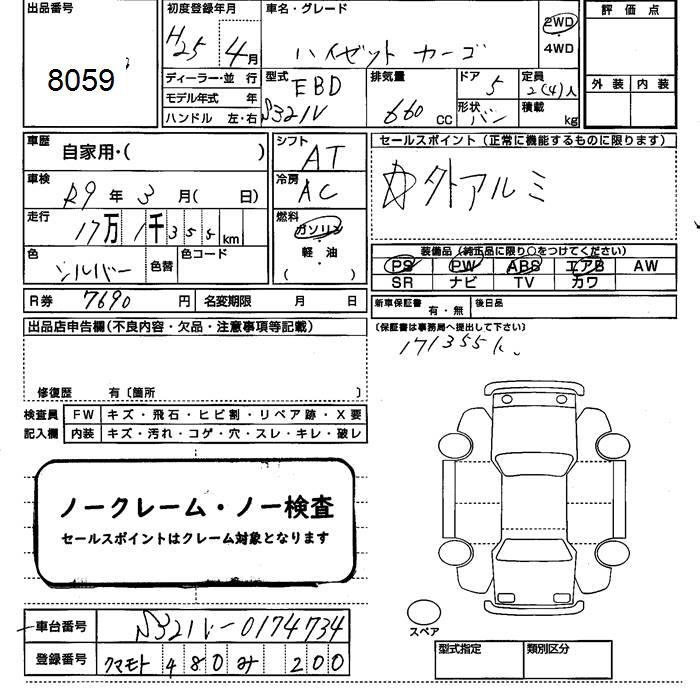 出品番号
8059
初度登録年月
H25 4月
車名・グレード
ハイゼット カーゴ
2WD
4WD
評価点
外装 内装
ディーラー・並 行
モデル年式 年
ハンドル 左・右
型式
EBD
S321V
排気量
660 cc
ドア 5
形状 バン
定員
2(4)人
積載
kg
車歴
自家用・( )
車検
R9年 3月( 日)
走行
17万 1千355km
色
シルバー
色替
色コード
シフト
AT
冷房
AC
燃料
ガソリン
軽・油
( )
セールスポイント(正常に機能するものに限ります)
外アルミ
装備品(純正品に限り○をつけてください)
PS PW ABS エアB AW
SR ナビ TV カワ
R券 7690円 名変期限 月 日
新車保証書 有・無 後日品
(保証書は事務局へ提出して下さい)
171355k
出品店申告欄(不良内容・欠品・注意事項等記載)
修復歴 有〔箇所 〕
検査員 FW キズ・飛石・ヒビ割・リペア跡・X要
記入欄 内装 キズ・汚れ・コゲ・穴・スレ・キレ・破レ
ノークレーム・ノー検査
セールスポイントはクレーム対象となります
車台番号 S321V-0174734
登録番号 クマモト 480 み 200
スペア
型式指定 類別区分